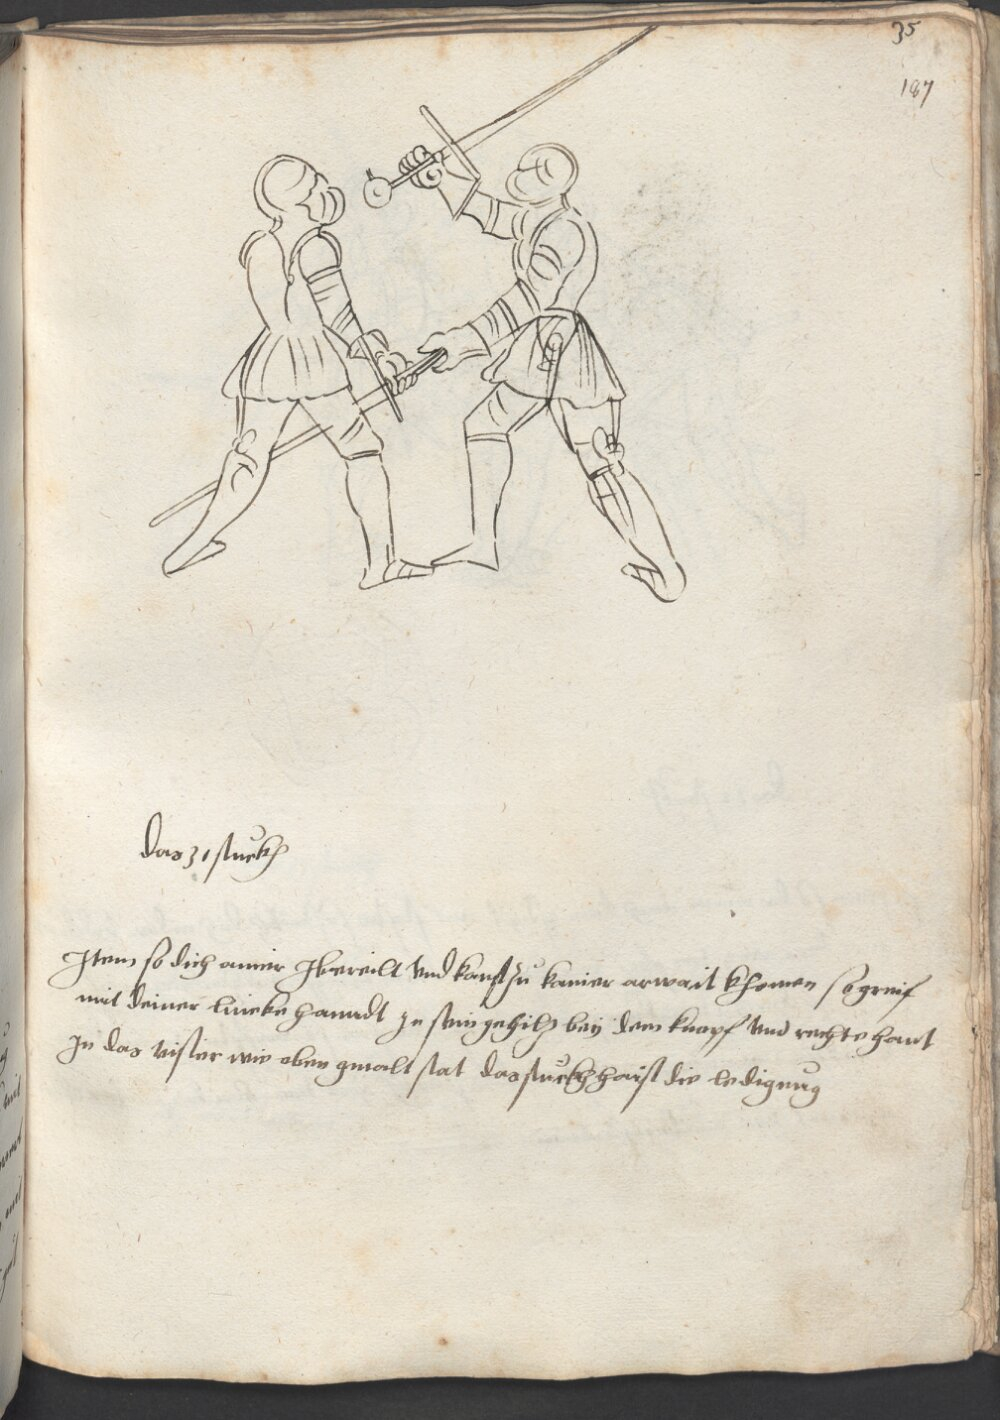 35
187
das 31 stuckh
Item so dich ainer Ibereilt vnd kanst zu kainer arwait khomen so greif
mit deiner lincke hanndt in sein gehilz bey dem knopf vnd rechte hant
In das visier wie oben gmalt stat das stuckh haist die ledigung